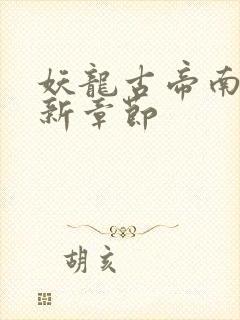 妖龍古帝南
新章節
胡亥